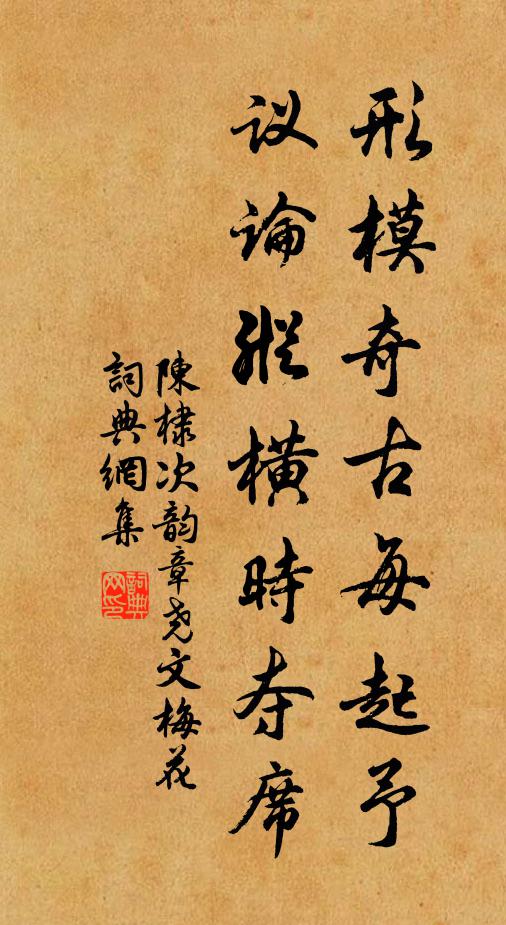 形模奇古每起予
议論縱横時夺席
陳棣次韵章尧文梅花
詞典網集
詞典网印